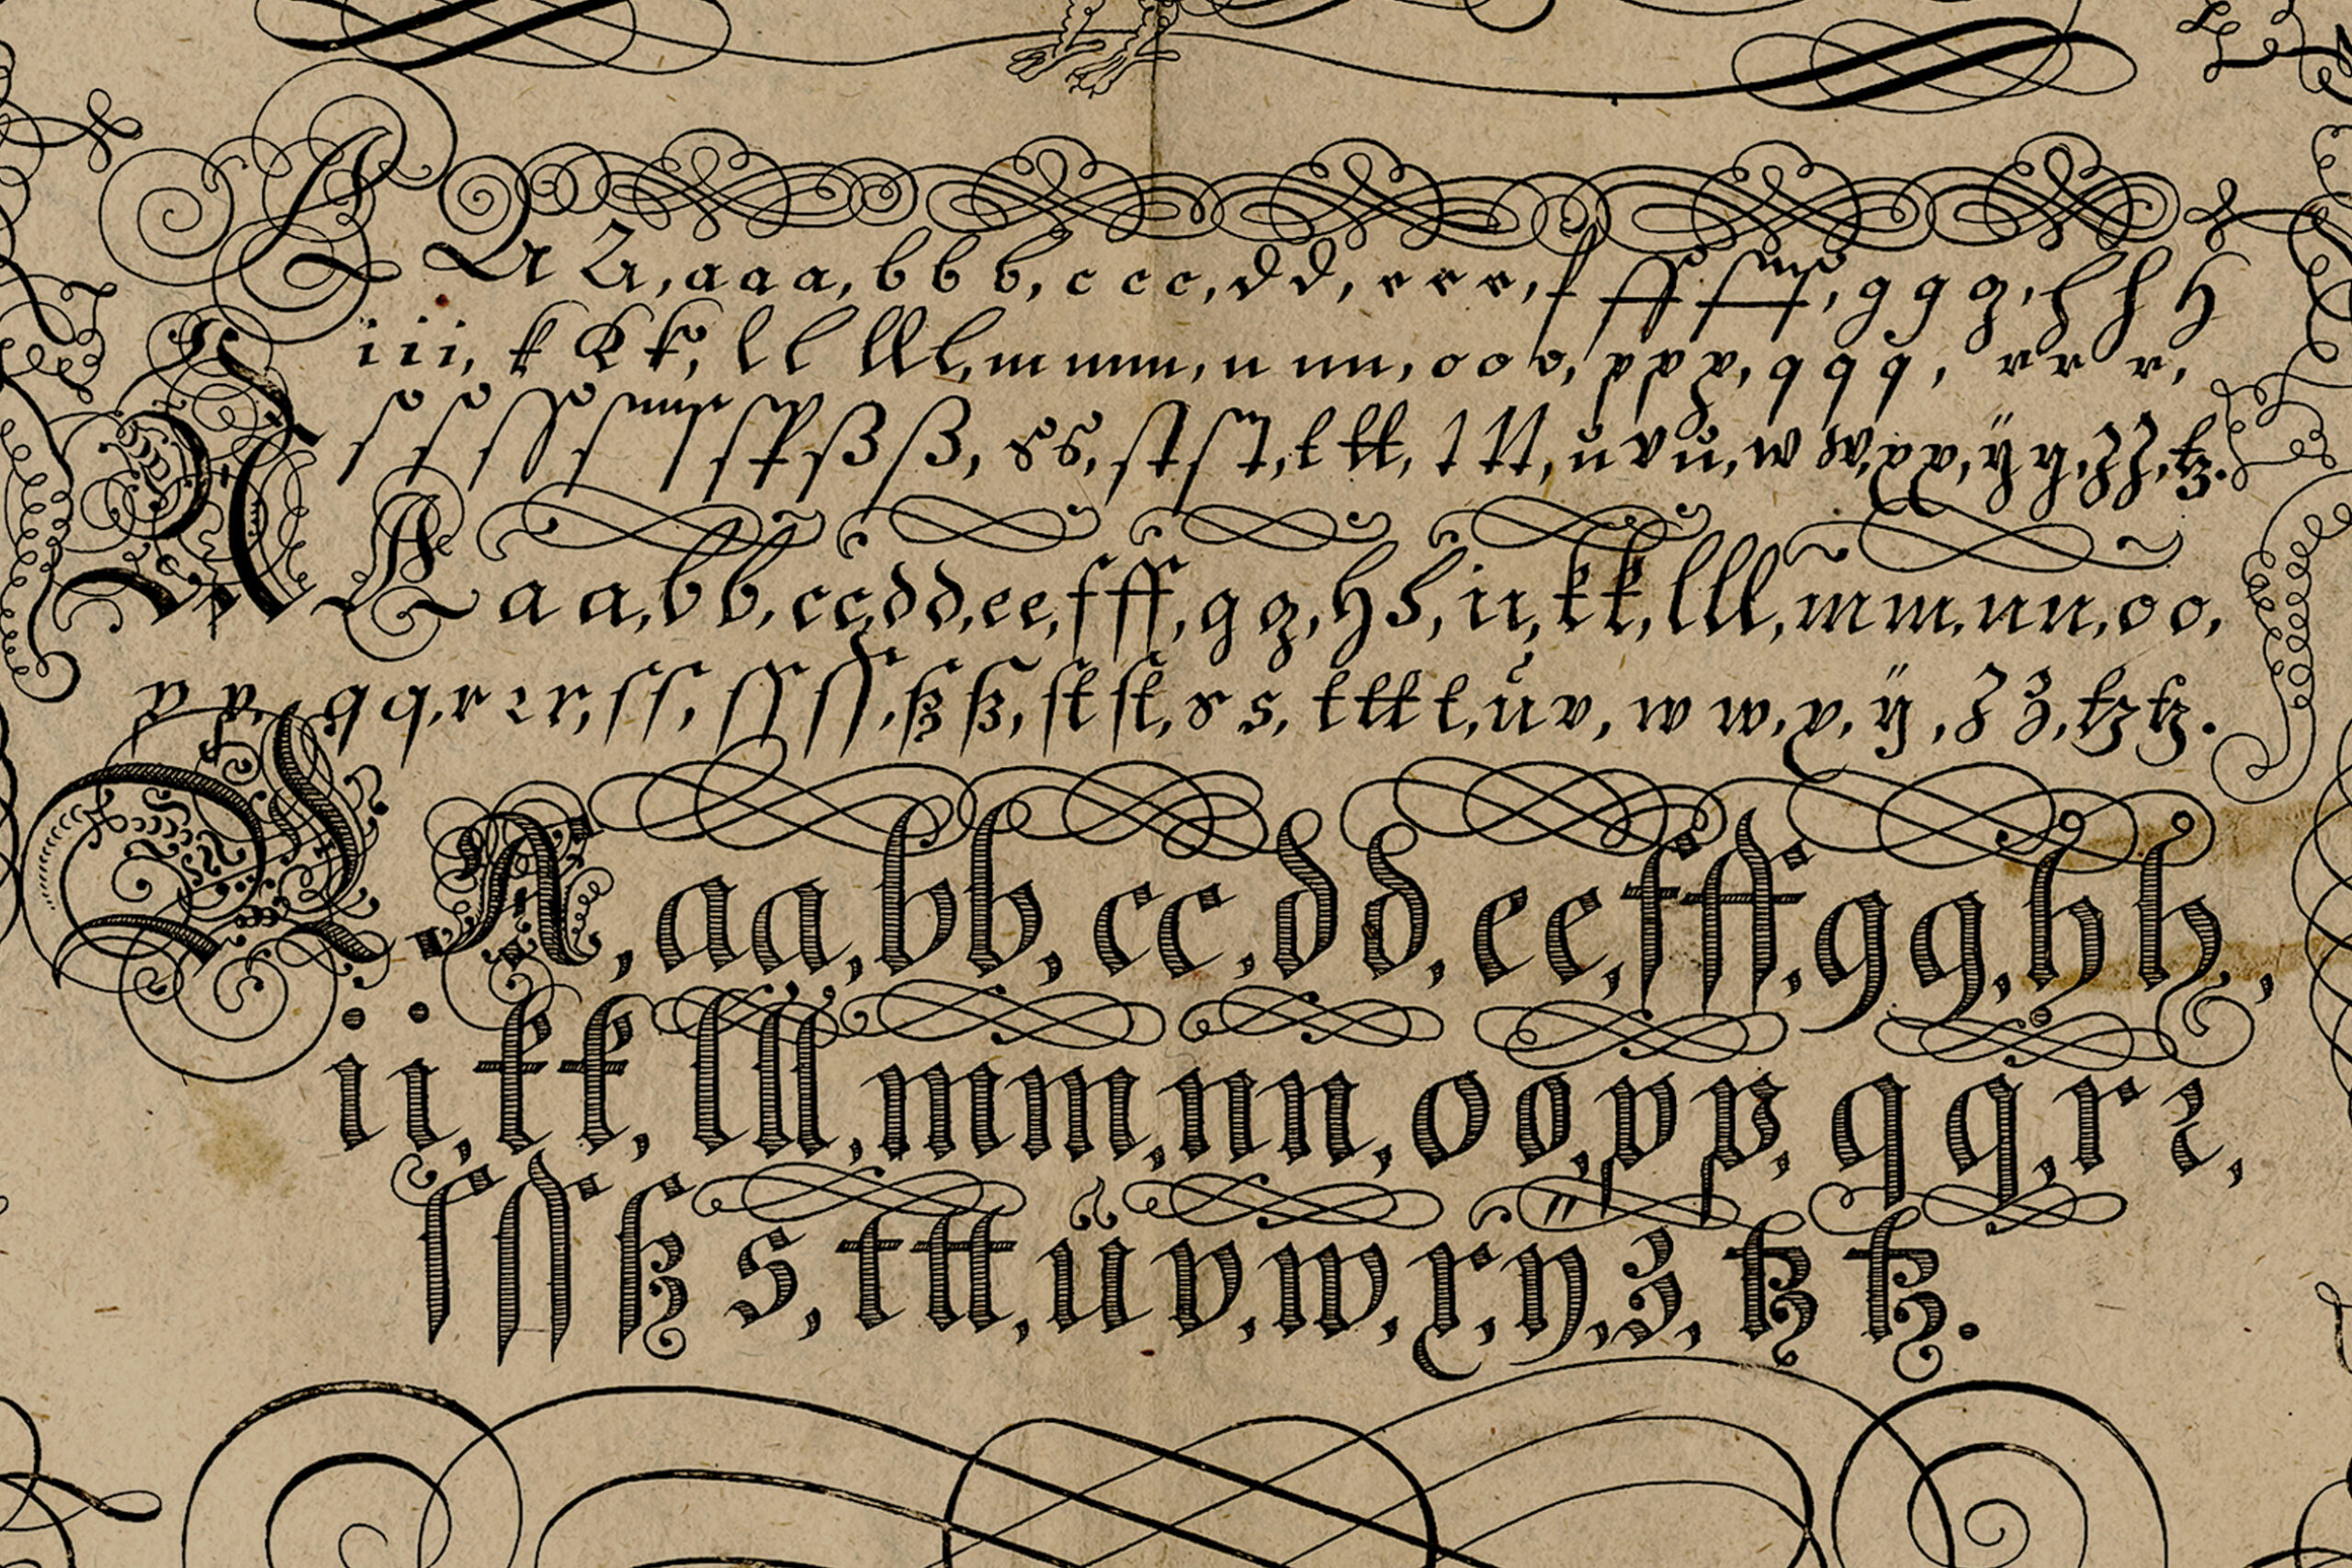 A A A, a a a, b b b, c c c, d d, e e e, f ff ff, g g g, h h h
i i i, k k k, l l lll, m mm, n nn, o o o, p p p, q q q, r r r,
ſ ſ ſſ ſ ſ ſt ß ß, s s, ſt ſt, t tt, t tt, u v u, w w, x x, ÿ y, z z, tz.
A A a a, b b, c c, d d, e e, f ff, g g, h h, i i, k k, l ll, m m, n n, o o,
p p, q q, r r r, ſ ſ, ſſ ſſ, ß ß, ſt ſt, s s, t tt t, ů v, w w, x, ÿ, z z, tz tz.
A A, a a, b b, c c, d d, e e, f ff, g g, h h,
i i, k k, l ll, m m, n n, o o, p p, q q, r r,
ſ ſſ ß s, t tt, ü v, w, x, ÿ, z, tz tz.